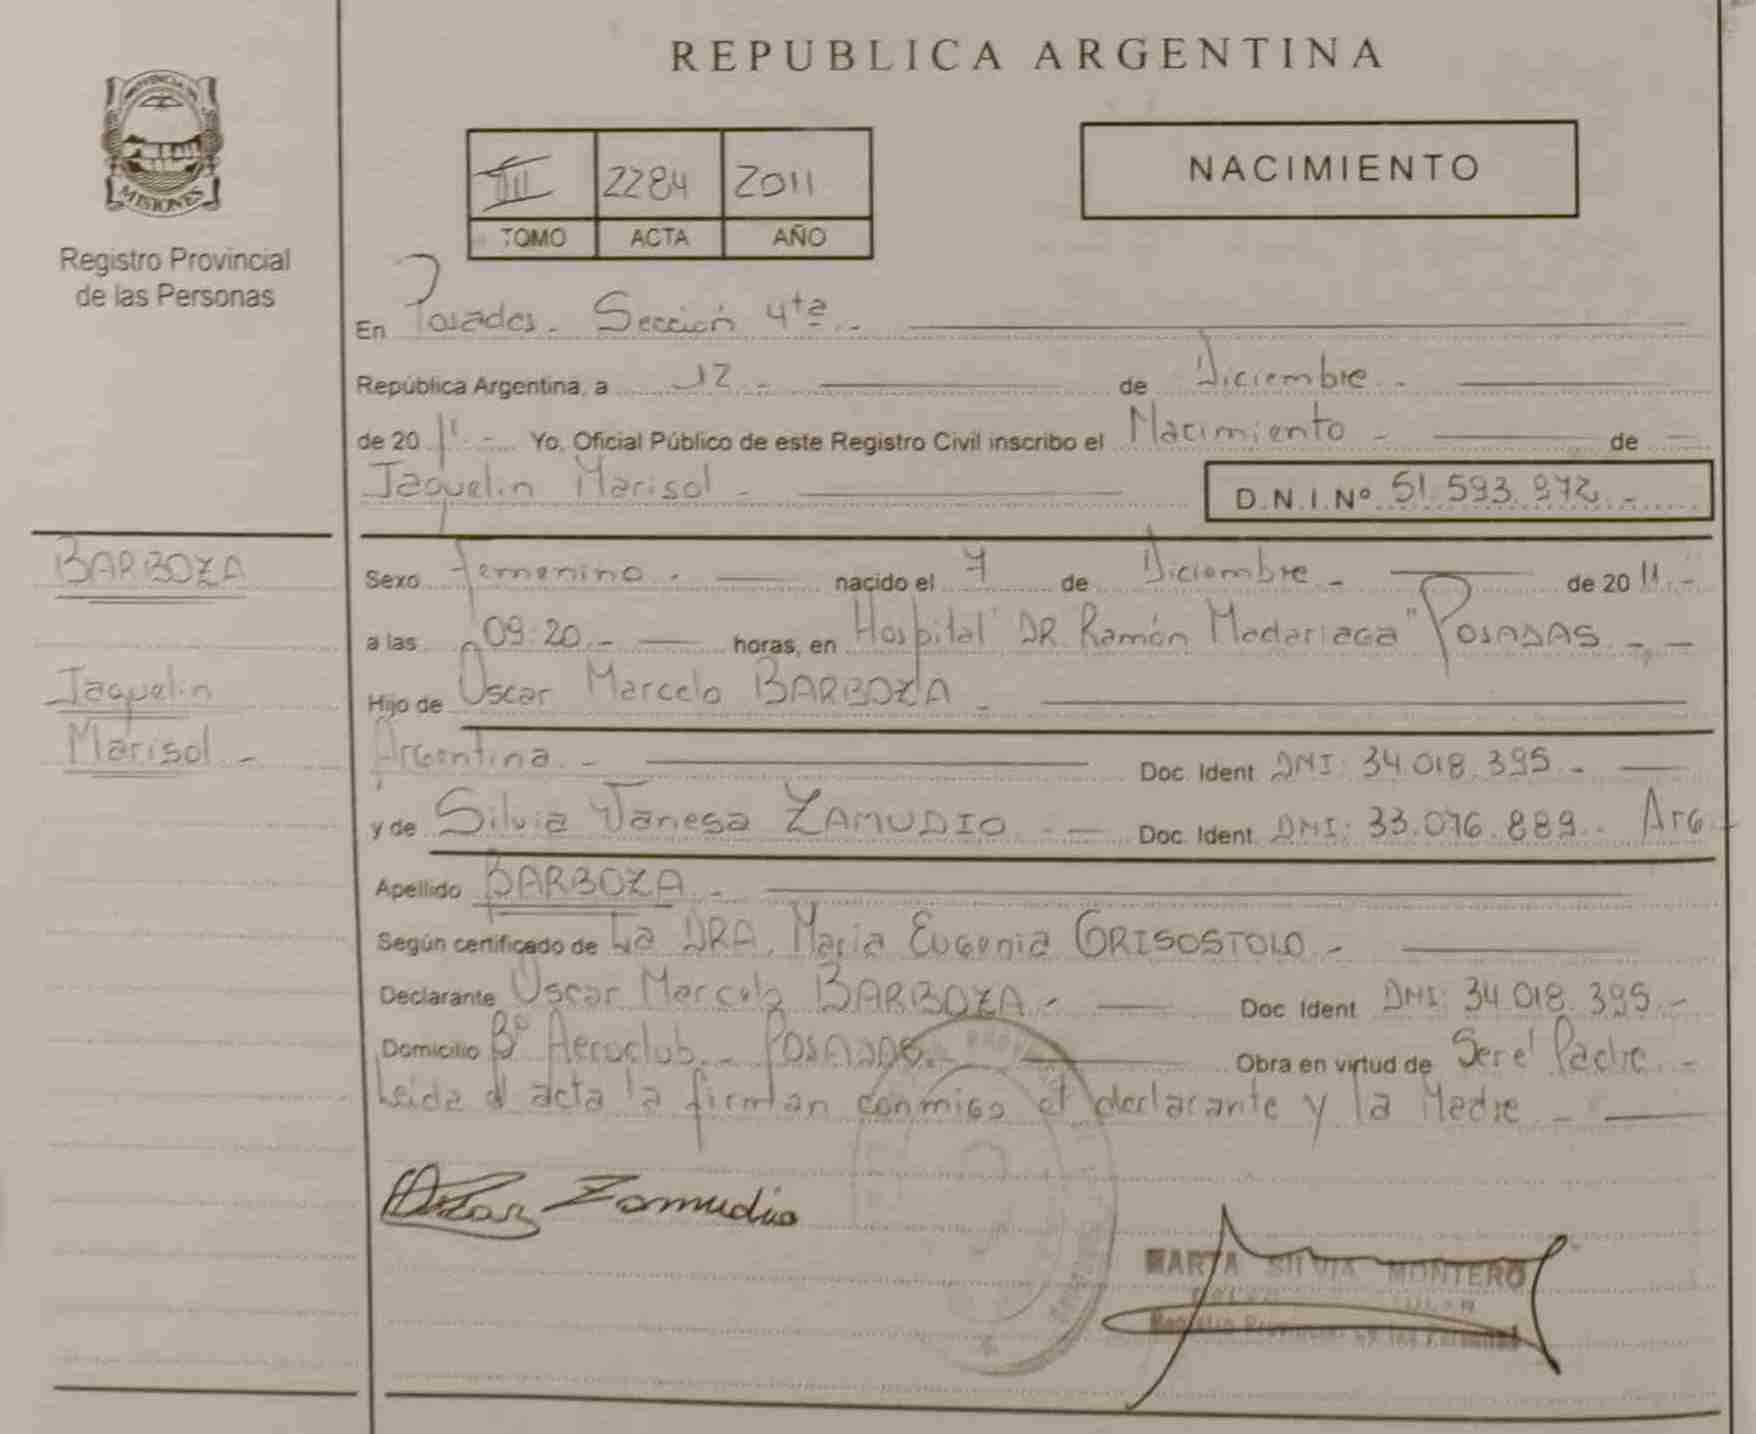 REPUBLICA ARGENTINA
PROVINCIA DE
MISIONES
Registro Provincial
de las Personas
III 2284 2011
TOMO ACTA AÑO
NACIMIENTO
En Posadas. Sección 4ta. -
República Argentina, a 12 - de Diciembre -
de 20 11 - Yo, Oficial Público de este Registro Civil inscribo el Nacimiento - de -
Jaquelin Marisol -
D.N.I.Nº 51.593.972.-
BARBOZA
Jaquelin
Marisol -
Sexo femenino. - nacido el 7 de Diciembre - de 20 11.-
a las 09:20.- horas, en Hospital DR. Ramón Madariaga" POSADAS. - -
Hijo de Oscar Marcelo BARBOZA -
Argentina. - Doc. Ident DNI: 34.018.395.-
y de Silvia Vanesa ZAMUDIO - - Doc. Ident. DNI: 33.076.889.- Arg.
Apellido BARBOZA.-
Según certificado de La DRA. María Eugenia GRISOSTOLO -
Declarante Oscar Marcelo BARBOZA - Doc Ident DNI: 34.018.395.-
Domicilio Bº Aeroclub.- POSADAS.- Obra en virtud de Ser el Padre -
Leída el acta la firman conmigo el declarante y la Madre -
Zamudio
MARTA SILVIA MONTERO
Registro Provincial de las Personas